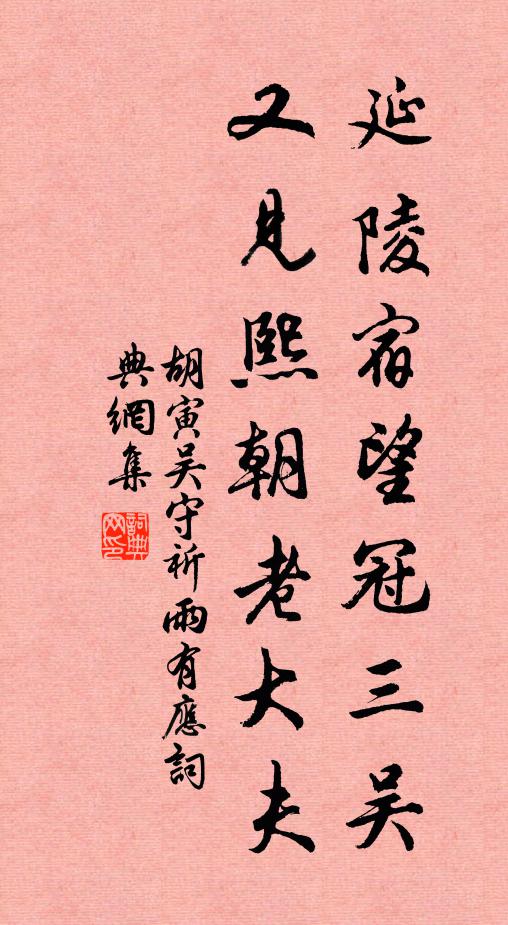 延陵宿望冠三吴
又見熙朝老大夫
胡寅吴守祈雨有應詞
典網集
詞典網印